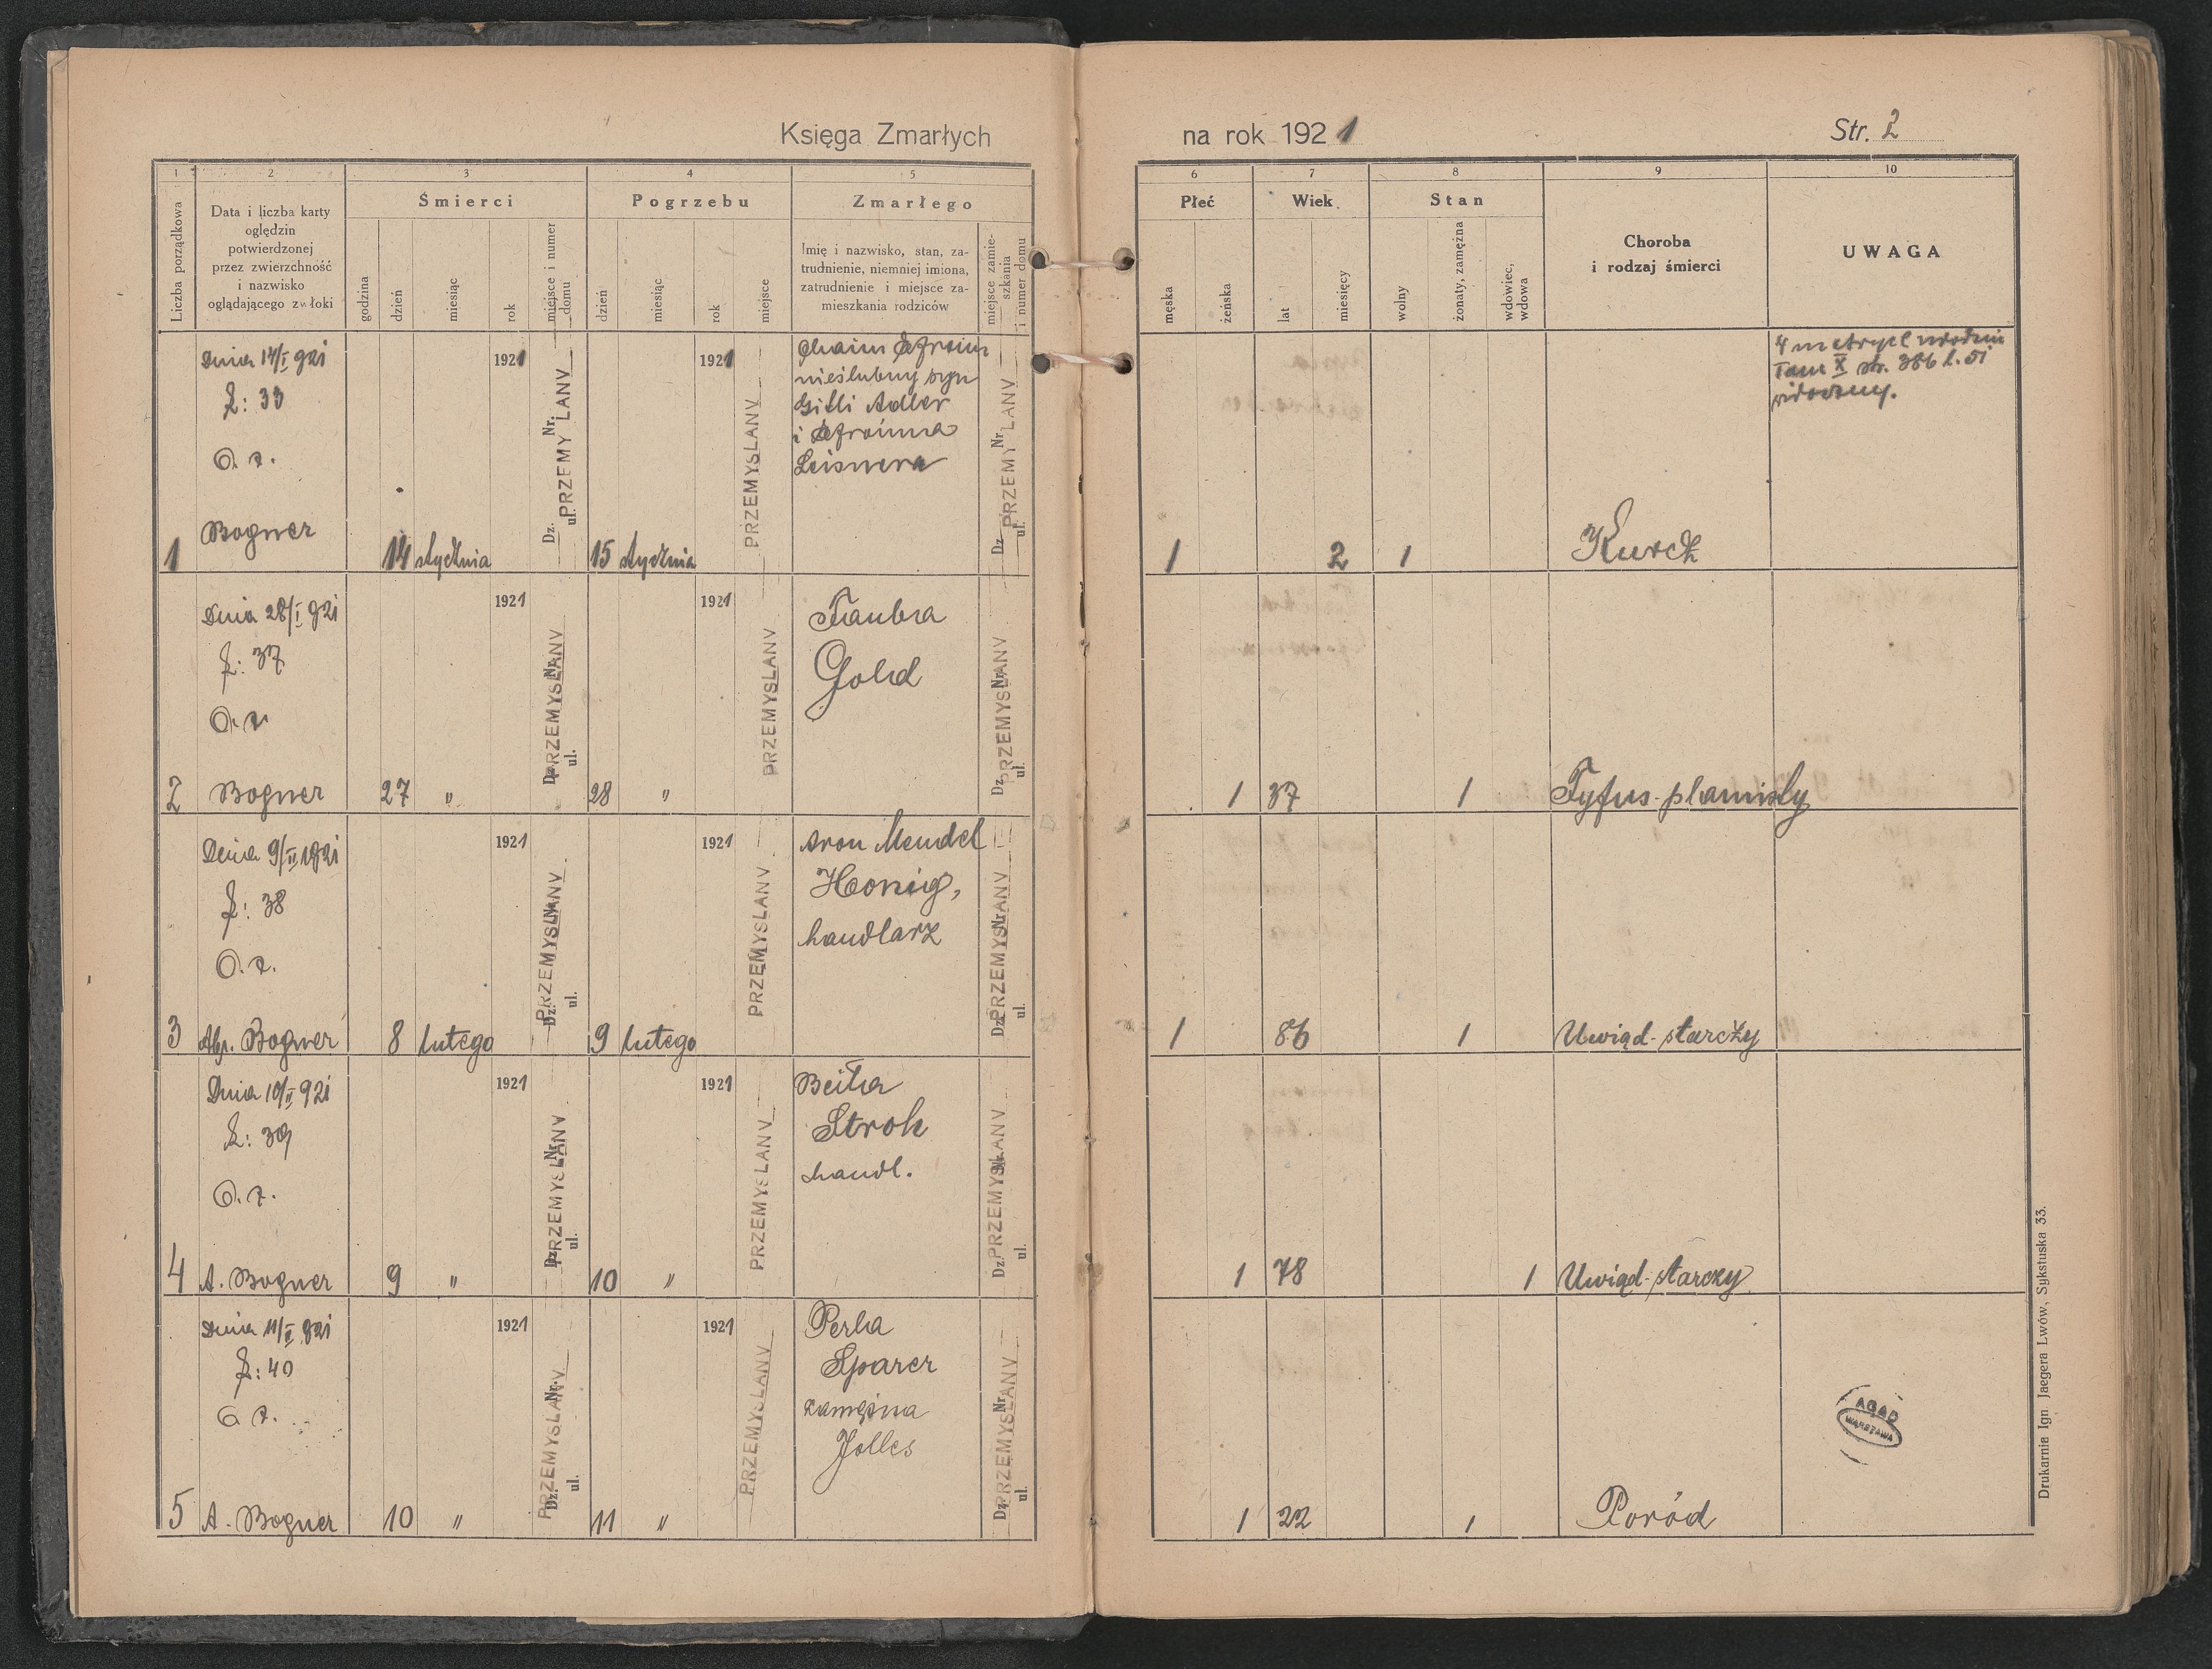 Księga Zmarłych
na rok 1921
Str. 2
1
2
3
4
5
6
7
8
9
10
Liczba porządkowa
Data i liczba karty
oględzin
potwierdzonej
przez zwierzchność
i nazwisko
oglądającego zwłoki
Śmierci
godzina
dzień
miesiąc
rok
miejsce i numer
domu
Pogrzebu
dzień
miesiąc
rok
miejsce
Zmarłego
Imię i nazwisko, stan, za-
trudnienie, niemniej imiona,
zatrudnienie i miejsce za-
mieszkania rodziców
miejsce zamie-
szkania
i numer domu
Płeć
męska
żeńska
Wiek
lat
miesięcy
Stan
wolny
żonaty, zamężna
wdowiec,
wdowa
Choroba
i rodzaj śmierci
UWAGA
1
Dnia 14/I 921
L: 33
O. z.
Bogner
14 stycznia
1921
Dz. Nr.
ul.
PRZEMYSLANY
15 stycznia
1921
PRZEMYSLANY
Chaim Efroim
nieślubny syn
Gitli Adler
i Efroima
Leisnera
Dz. Nr.
ul.
PRZEMYSLANY
1
2
1
Kurcz
z metryk urodzin
Tom X str. 386 l. 51
widoczny.
2
Dnia 28/I 921
L: 37
O. z.
Bogner
27 "
1921
Dz. Nr.
ul.
PRZEMYSLANY
28 "
1921
PRZEMYSLANY
Taubra
Gold
Dz. Nr.
ul.
PRZEMYSLANY
1
37
1
Tyfus-plamisty
3
Dnia 9/II 1921
L: 38
O. z.
Abr. Bogner
8 lutego
1921
Dz. Nr.
ul.
PRZEMYSLANY
9 lutego
1921
PRZEMYSLANY
Aron Mendel
Honig,
handlarz
Dz. Nr.
ul.
PRZEMYSLANY
1
86
1
Uwiąd-starczy
4
Dnia 10/II 921
L: 39
O. z.
A. Bogner
9 "
1921
Dz. Nr.
ul.
PRZEMYSLANY
10 "
1921
PRZEMYSLANY
Beila
Stroh
handl.
Dz. Nr.
ul.
PRZEMYSLANY
1
78
1
Uwiąd-starczy
5
Dnia 11/II 921
L: 40
O. z.
A. Bogner
10 "
1921
Dz. Nr.
ul.
PRZEMYSLANY
11 "
1921
PRZEMYSLANY
Perla
Sparer
zamężna
Jolles
Dz. Nr.
ul.
PRZEMYSLANY
1
22
1
Poród
AGAD
WARSZAWA
Drukarnia Ign Jaegera Lwów, Sykstuska 33.